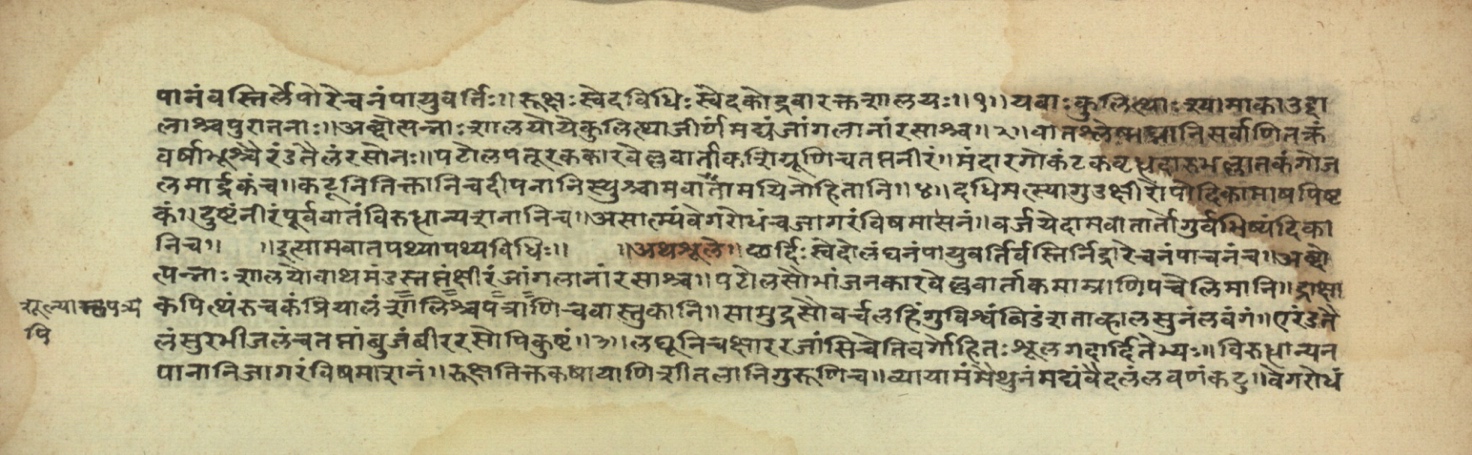 पानंवस्तिर्लेपोरेचनंपायुवर्तिः॥रूक्षःस्वेदविधिःस्वेदकोद्रवारक्तशालयः॥१॥यवाःकुलित्थाःश्यामाकाउद्दा
लाश्चपुरातनाः॥अब्दोत्पन्नाःशालयोयेकुलित्थाजीर्णंमद्यंजांगलानांरसाश्च॥२॥वातश्लेष्मघ्नानिसर्वाणितक्रं
वर्षाभूश्चैरंडतैलंरसोनः॥पटोलपत्तूरककारवेल्लवार्ताकशिग्रूणिचतप्तनीरं॥मंदारगोकंटकवृद्धदारुभल्लातकंगोज
लमार्द्रकंच॥कटूनितिक्तानिचदीपनानिस्युश्चामवातामयिनोहितानि॥४॥दधिमत्स्यागुडक्षीरोपोदिकामाषपिष्ट
कं॥दुष्टंनीरंपूर्ववातंविरुद्धान्यशनानिच॥असात्म्यंवेगरोधंचजागरंविषमासनं॥वर्जयेदामवातार्तोगुर्वभिष्यंदिका
निच॥ ॥इत्यामवातपथ्यापथ्यविधिः॥ ॥अथशूले॥छर्दिःस्वेदोलंघनंपायुवर्तिर्वस्तिर्निद्रारेचनंपाचनंच॥अब्दो
त्पन्नाःशालयोवाथमंडस्तप्तंक्षीरंजांगलानांरसाश्च॥पटोलसौभांजनकारवेल्लवार्ताकमाम्राणिपचेलिमानि॥द्राक्षा
कपित्थंरुचकंप्रियालंशालिश्चपत्राणिचवास्तुकानि॥सामुद्रसौवर्चलहिंगुविश्वंबिडंशताव्हालसुनंलवंगं॥एरंडतै
लंसुरभीजलंचतप्तांबुजंबीररसोपिकुष्टं॥३॥लघूनिचक्षाररजांसिचेतिवर्गोहितःशूलगदार्दितेभ्यः॥विरुद्धान्यन्न
पानानिजागरंविषमाशनं॥रूक्षतिक्तकषायाणिशीतलानिगुरूणिच॥व्यायामंमैथुनंमद्यंवैदलंलवणंकटु॥वेगरोधं